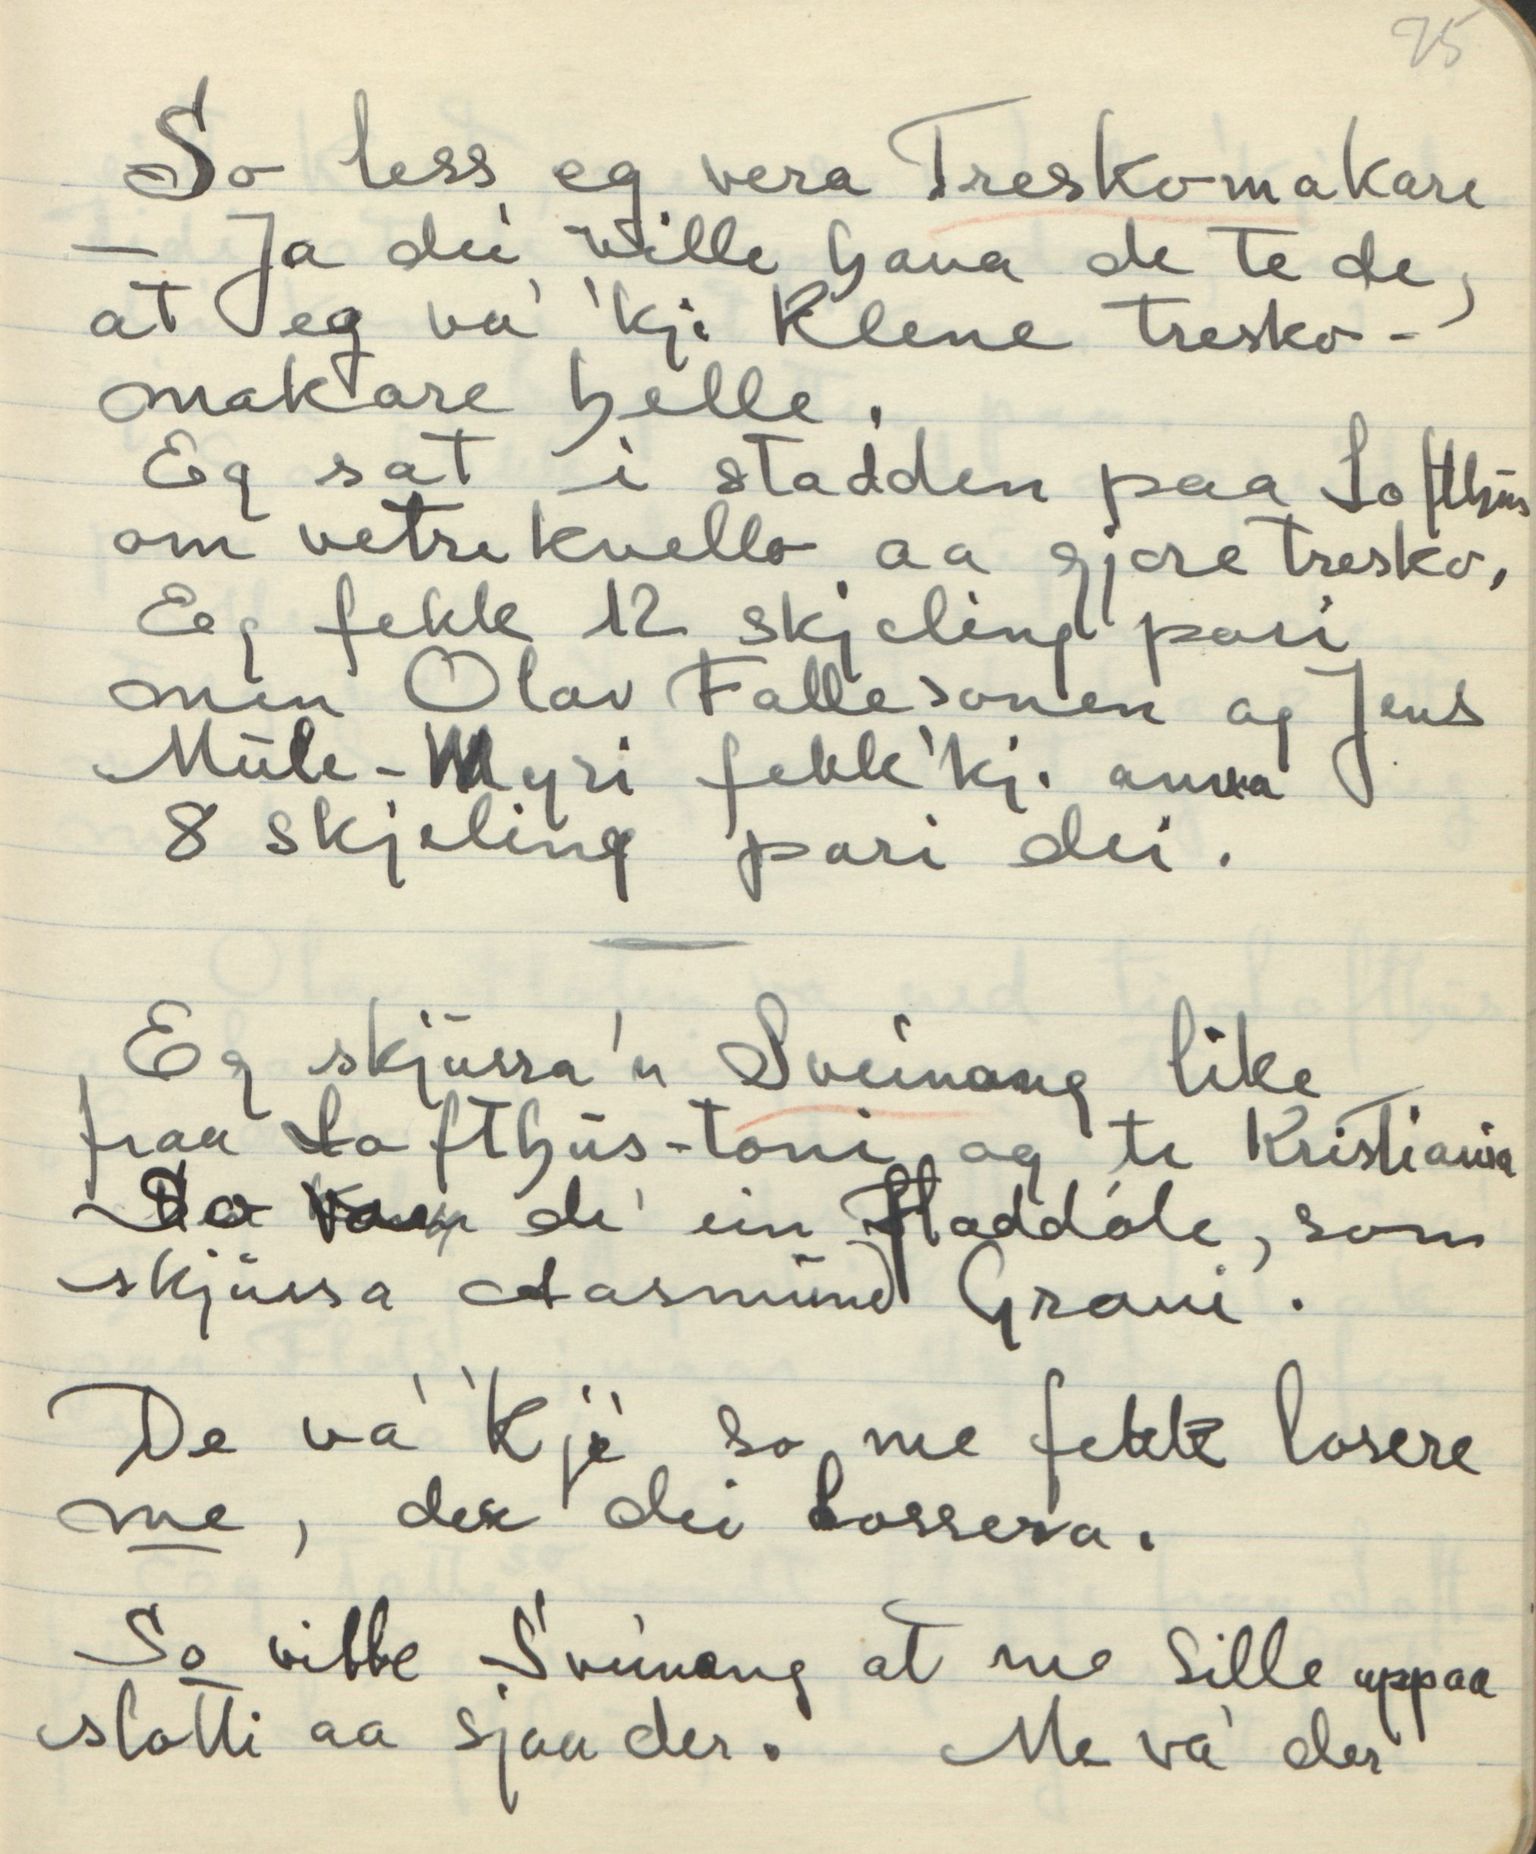 75
So less eg vera Treskomakare
— Ja dei ville hava de te de,
at eg va' 'kje klene tresko-
makare helle.
Eg sat i stadden paa Lofthüs
om vetrekvello aa gjore tresko.
Eg fekk 12 skjeling pari
men Olav Fallesonen og Jens
Müle-Myri fekk 'kj. anna
8 skjeling pari dei.
Eg skjüssa'n Sveinang like
fraa Lofthüs-toni og te Kristiania
So var de' ein Haddóle, som
skjüssa Aasmünd Grani.
De va' 'kje so me fekk losere
me, der dei lossera.
So vilde Sveinang at me sille uppaa
slotti aa sjaa der. Me va' der